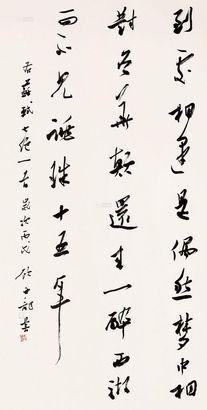 到處相逢是偶然夢中相
對各華顛還來一醉西湖
雨不見跳珠十五年
蘇軾七絕一首歲次丙戌